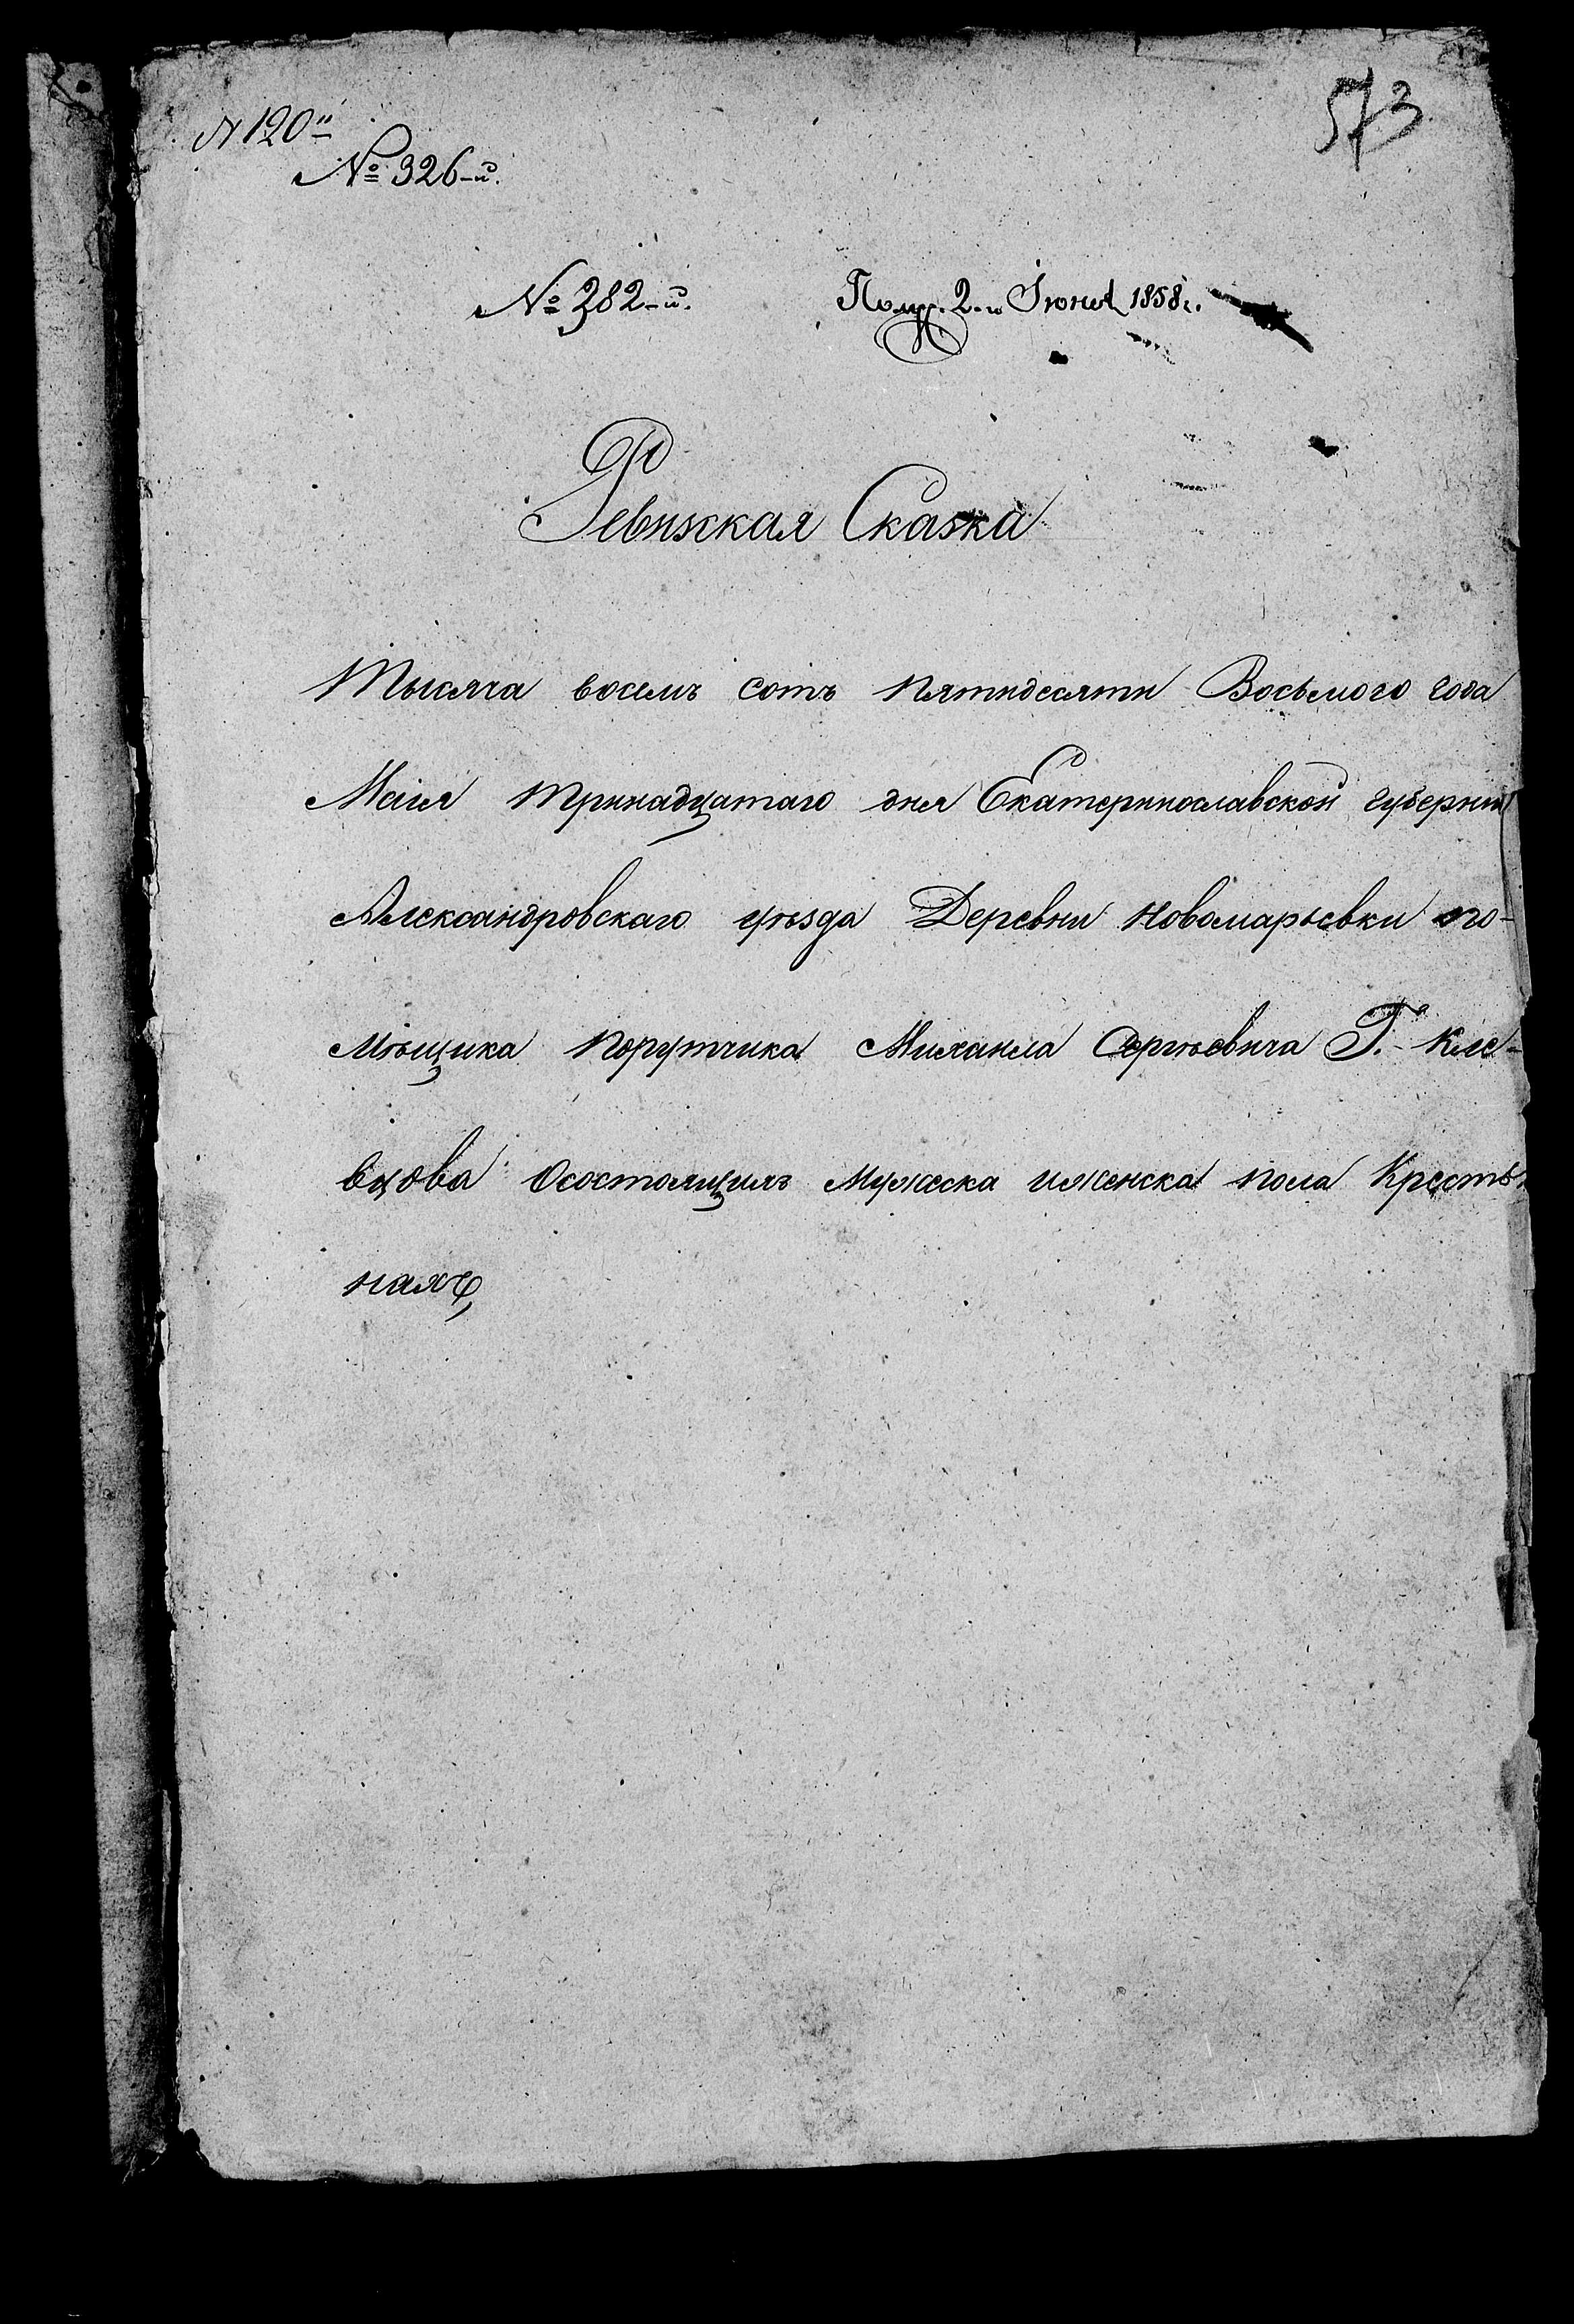 № 120й
573
№ 326-й.
№ 382-й.
Получ. 2-го Іюня 1858 г.
Ревизская Сказка
Тысяча восемъ сотъ пятидесяти Восьмого года
Маія тринадцатаго дня Екатеринославской губерніи
Александровскаго уѣзда Деревни Новомарьевки по-
мѣщика поручика Михаила Сергѣевича Г. Кле-
вцова Осостоящихъ Мужеска иженска пола Кресть
нахъ,